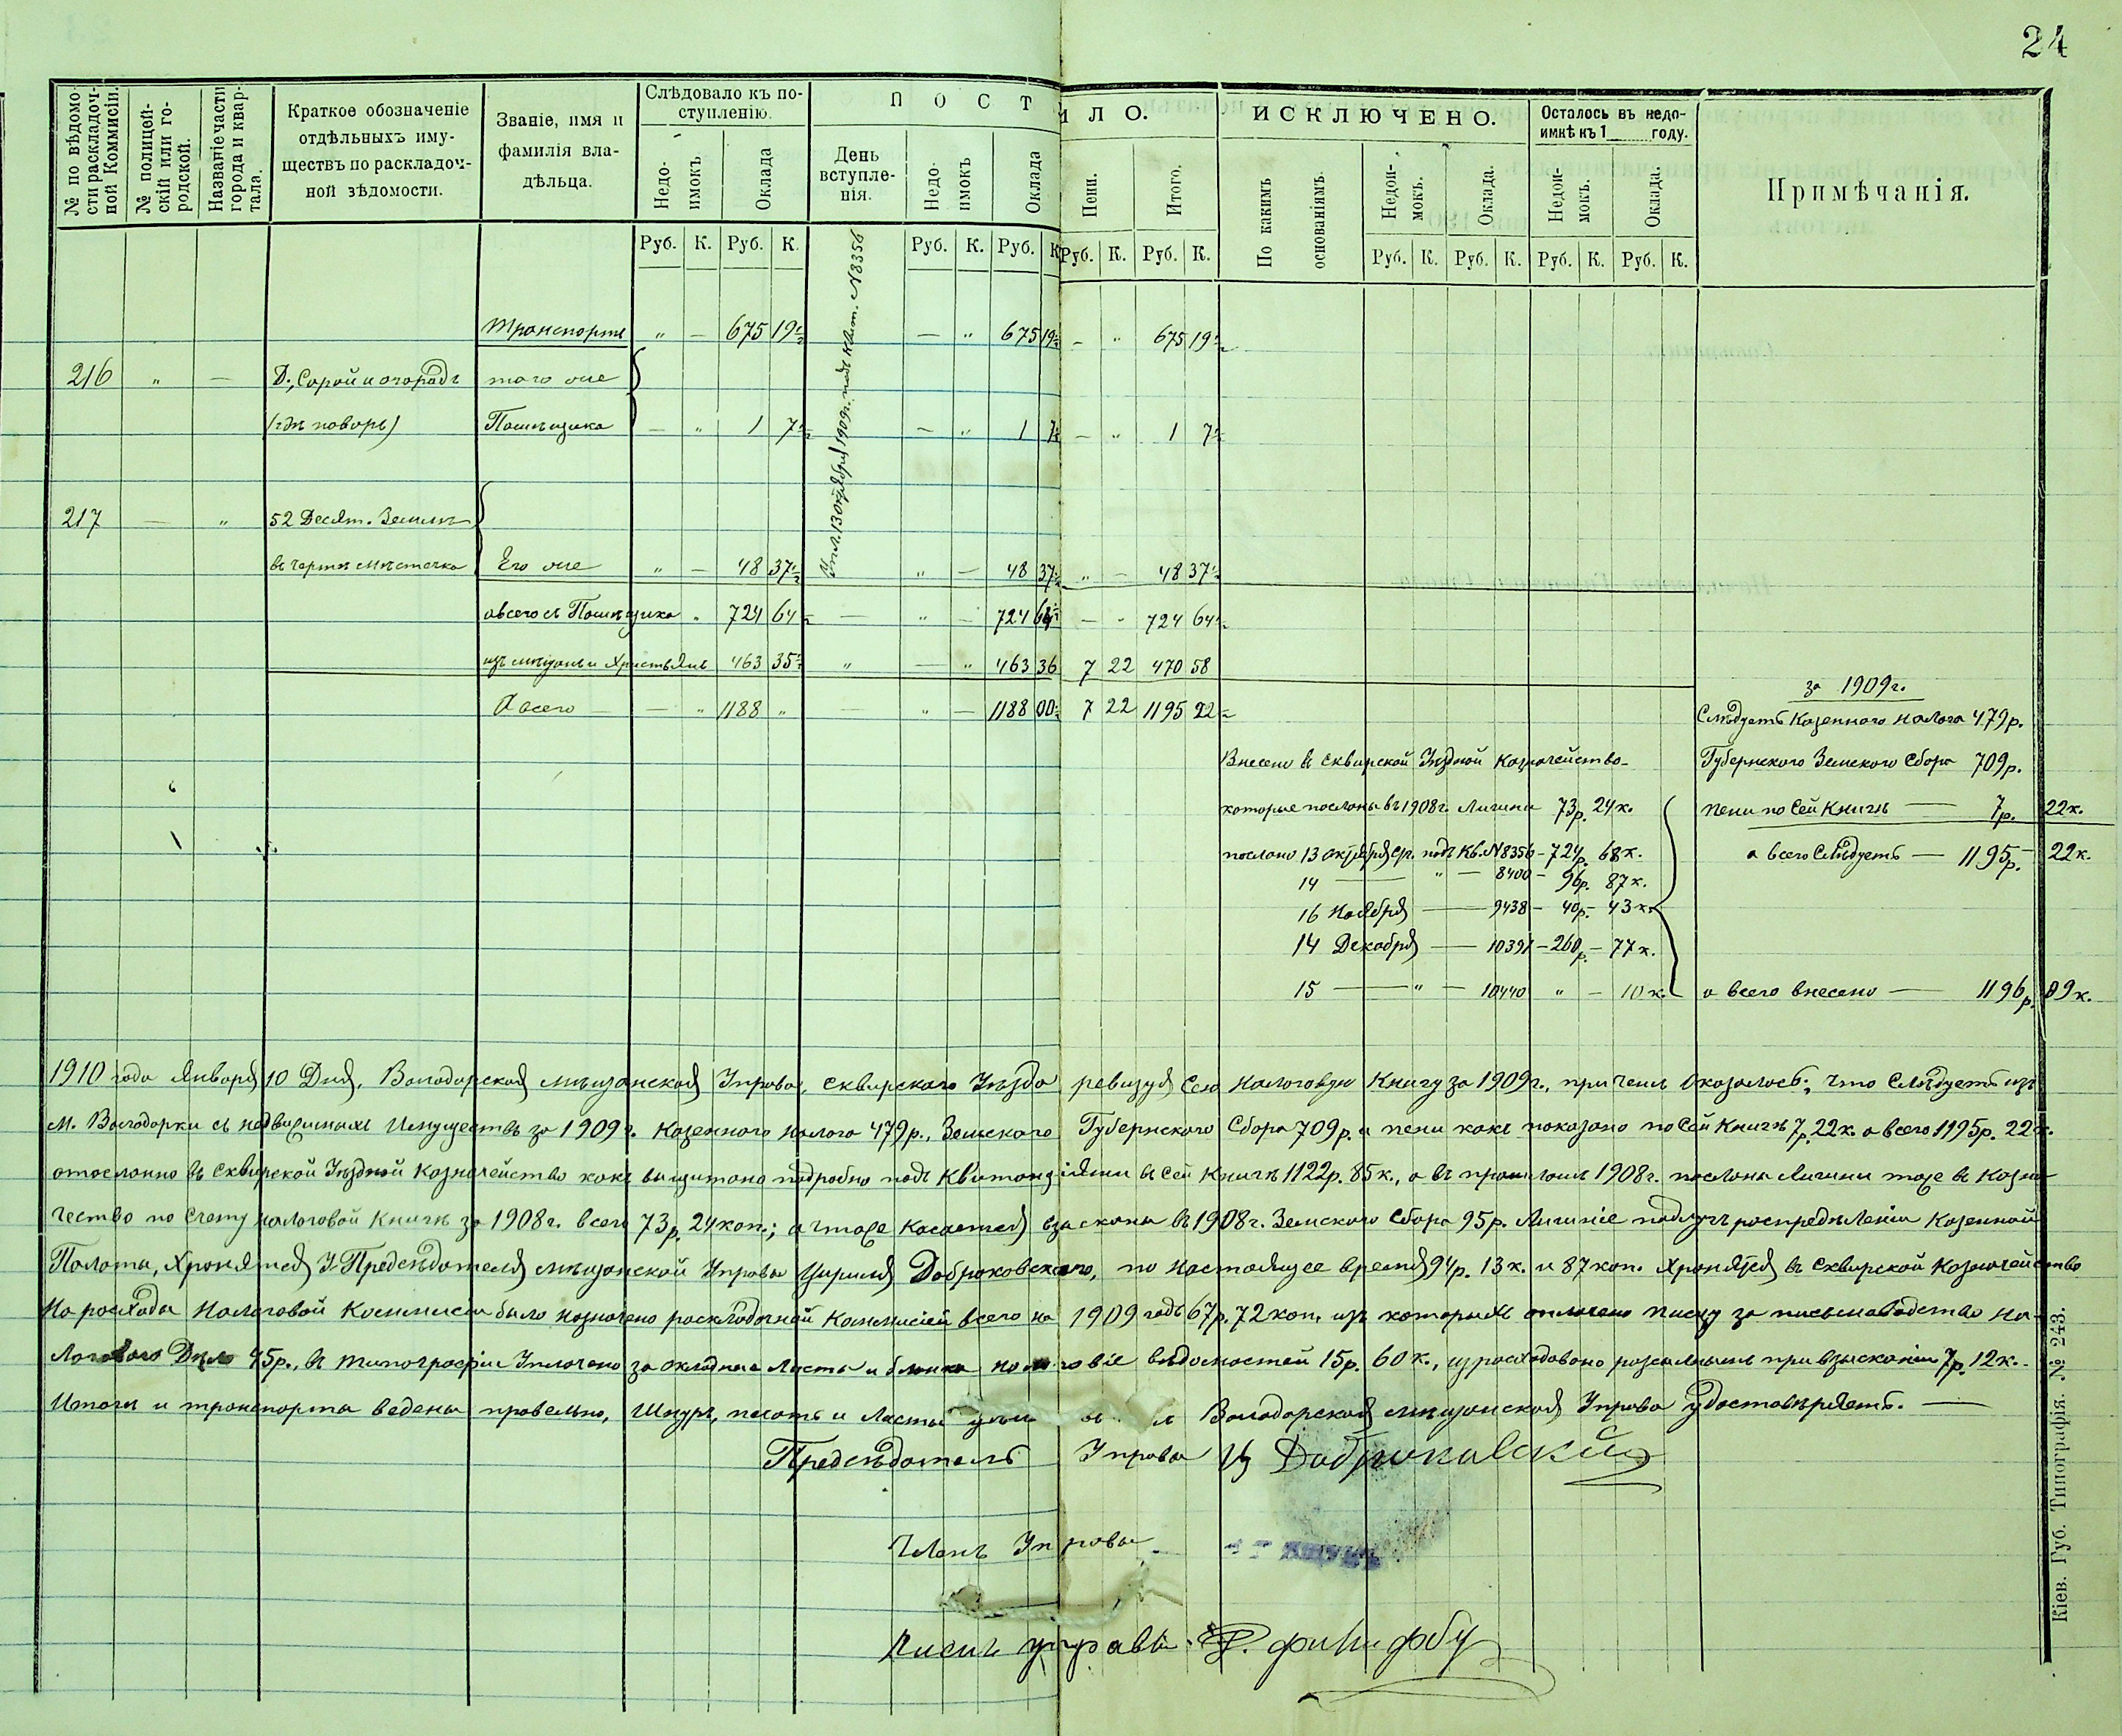 24
№ по вѣдомости раскладочной Коммисіи.
№ полицейскій или городской.
Названіе части города и квартала.
Краткое обозначеніе отдѣльныхъ имуществъ по раскладочной вѣдомости.
Званіе, имя и фамилія владѣльца.
Слѣдовало къ поступленію.
Недоимокъ
Оклада
ПОСТ
ИЛО.
День вступленія.
Недоимокъ
Оклада
Пени.
Итого.
ИСКЛЮЧЕНО.
По какимъ основаніямъ.
Недоимокъ.
Оклада.
Осталось въ недоимкѣ къ 1 году.
Недоимокъ.
Оклада.
Примѣчанія.
Руб. К. Руб. К. Руб. К. Руб. К Руб. К. Руб. К. Руб. К. Руб. К. Руб. К. Руб. К.
13 октября 1909г. подъ квит. №8356
Транспортъ " — 675 19 — " 675 19 — " 675 19
216 " — Д., Сарай и огородъ того же
Помѣщика — " 1 7 — " 1 7 — " 1 7
217 — " 52 Десят. Земли
въ чертѣ мѣстечка Его же " — 48 37 " — 48 37 " — 48 37
а всего съ Помѣщика " 724 64 — " — 724 64 — " 724 64
изъ мѣщанъ и Христьянъ 463 35 " — " 463 36 7 22 470 58
А всего — " 1188 " — " — 1188 00 7 22 1195 22
за 1909г.
Слѣдуетъ Казенного налога 479р.
Внесено въ Сквирской Уѣздной Казначейство Губернского Земского Сбора 709р.
которые посланы въ 1908г. Лишни 73р. 24к. Пени по Сей Книгѣ — 7р. 22к.
послано 13 октября с.г. подъ Кв. №8356 — 724р. 68к. а всего Слѣдуетъ — 1195р. 22к.
14 — " — 8400 — 96р. 87к.
16 Ноября — 9438 — 40р. — 43к.
14 Декабря — 10391 — 260р. — 77к.
15 — " — 10440 " — 10к. а всего внесено — 1196р. 09к.
1910 года Января 10 Дня, Володарская мѣщанская Управа, Сквирского Уѣзда ревизуя Сею Налоговую Книгу за 1909г., при чемъ Оказалось, что Слѣдуетъ изъ
М. Володарки съ недвижимыхъ Имуществъ за 1909г. Казенного налога 479р., Земского Губернского Сбора 709р. и пени какъ показано по Сей Книгѣ 7р. 22к. а всего 1195р. 22к.
отосланно въ Сквирской Уѣздной Казначейство какъ выщитано подробно подъ Квитанціями въ Сей Книгѣ 1122р. 85к., а въ прошломъ 1908г. посланы Лишни тоже въ Казна
чество по Счету налоговой Книги за 1908г. всего 73р. 24коп.; а чтоже Касается взысканы въ 1908г. Земского Сбора 95р. Лишніе распредѣленіи Казенной
Палаты, Хранятся У Предсѣдателя мѣщанской Управы Доброковского, по Настоящее время 94р. 13к. и 87коп. Хранятся въ Сквирской Казначейство
На расходы Налоговой Коммисіи было назначено раскладочной Коммисіей всего на 1909 годъ 67р. 72коп. изъ которыхъ оплочено писцу за письмаводство На-
логового Дѣло 45р., въ типографіи Уплочено за окладные Листы и бланки вѣдомостей 15р. 60к., израсходовано при взысканіи 7р. 12к. —
Итоги и транспорта ведены правельно, Шнуръ, печать и Листы Володарская мѣщанская Управа удостовѣряетъ. —
Предсѣдатель Управы Ц Доброковский
Членъ Управы
Управы
Кіев. Губ. Типографія. № 243.